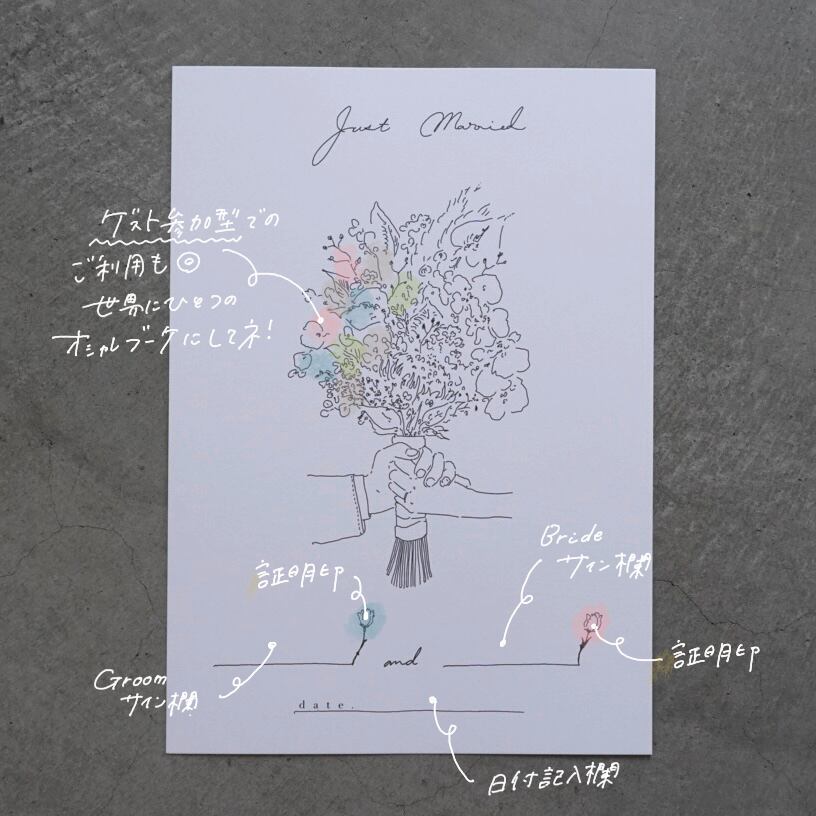 Just Married
ゲスト参加型での
ご利用も◎
世界にひとつの
オシャレブーケにしてネ!
Bride
サイン欄
証明印
証明印
and
Groom
サイン欄
date.
日付記入欄